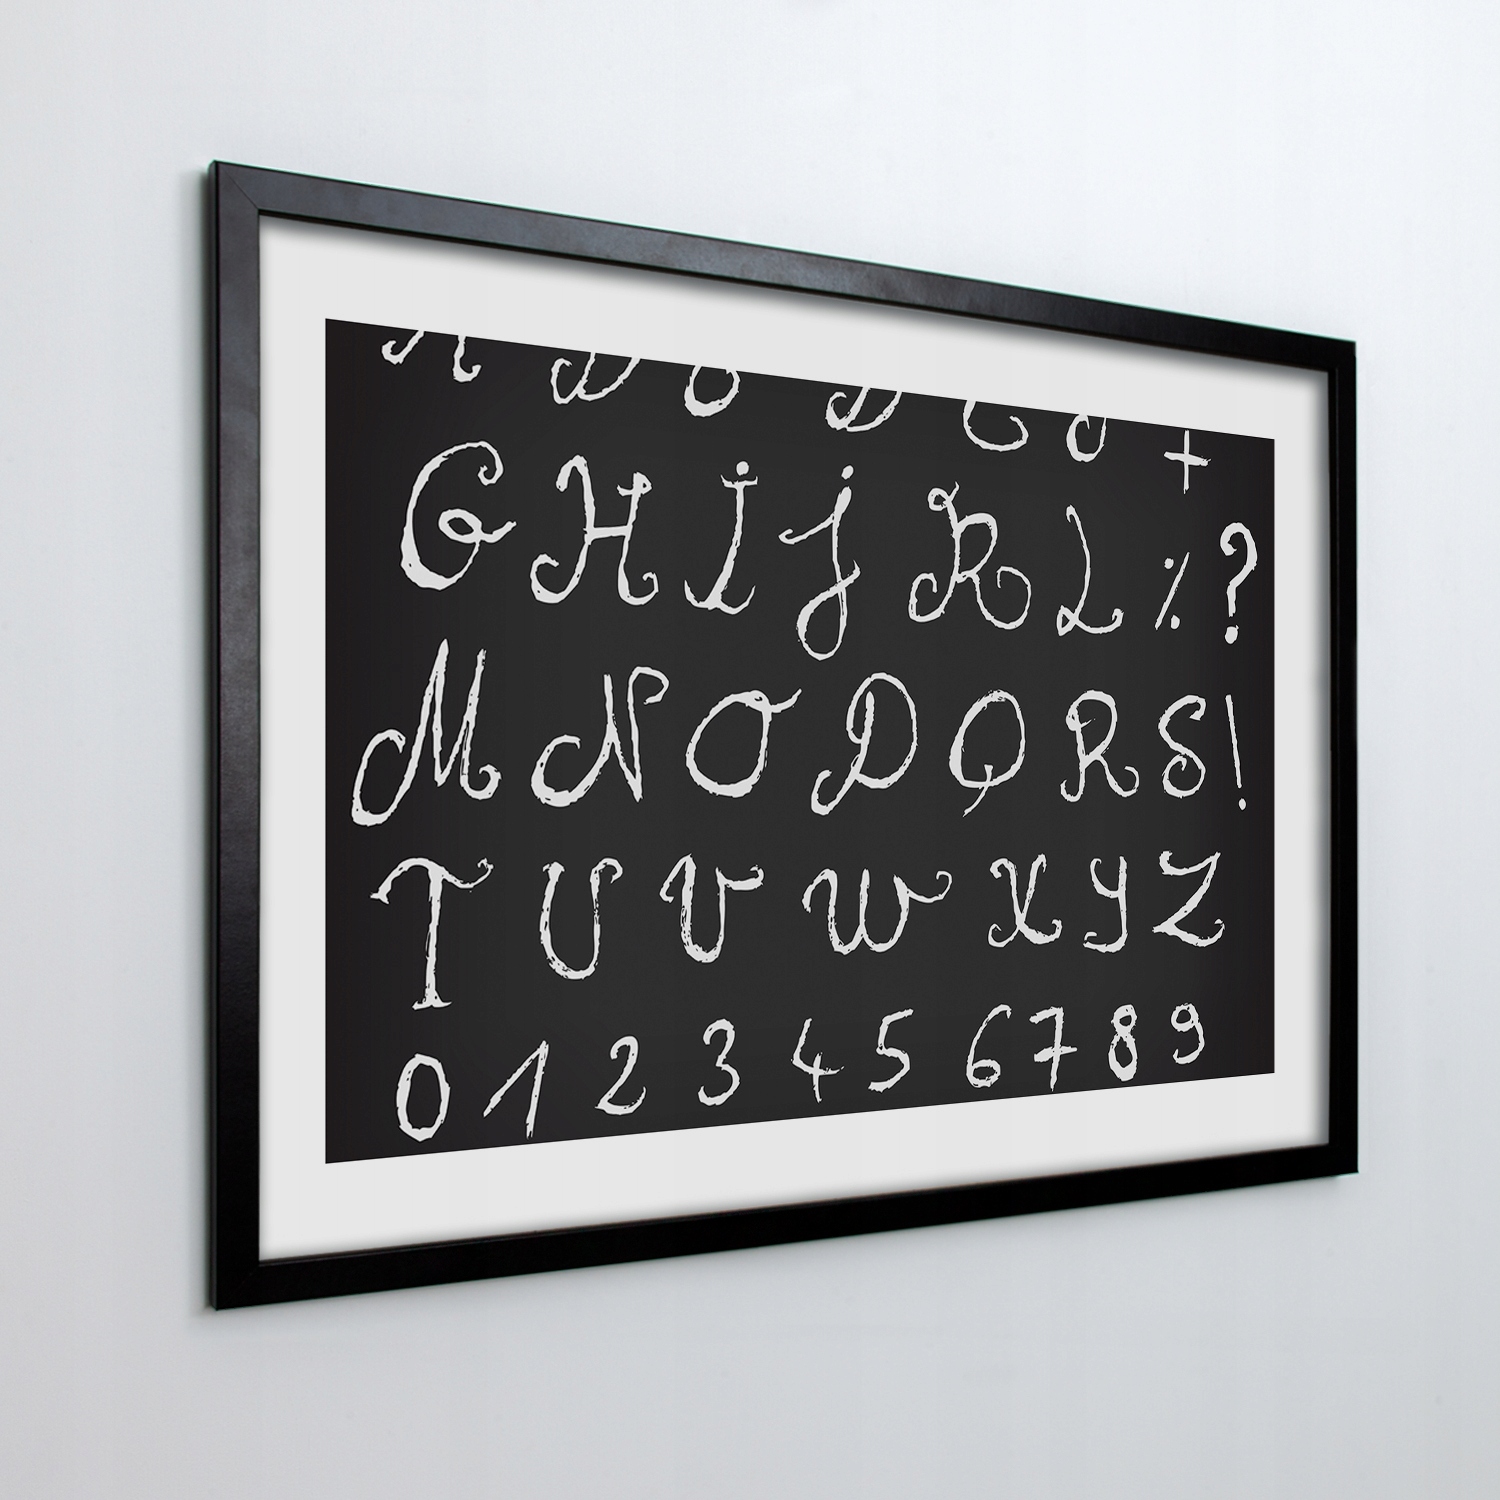 +
G H I J K L % ?
M N O P Q R S !
T U V W X Y Z
0 1 2 3 4 5 6 7 8 9